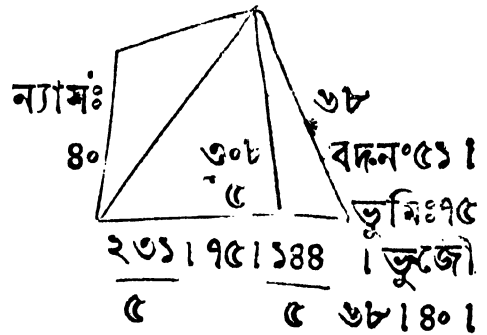 ন্যাসঃ
৪০
৬৮
৩০৮
৫
বদন° ৫১ ।
ভূমিঃ ৭৫
২৩১ । ৭৫ । ১৪৪
৫ ৫
। ভুজৌ
৬৮ । ৪০ ।